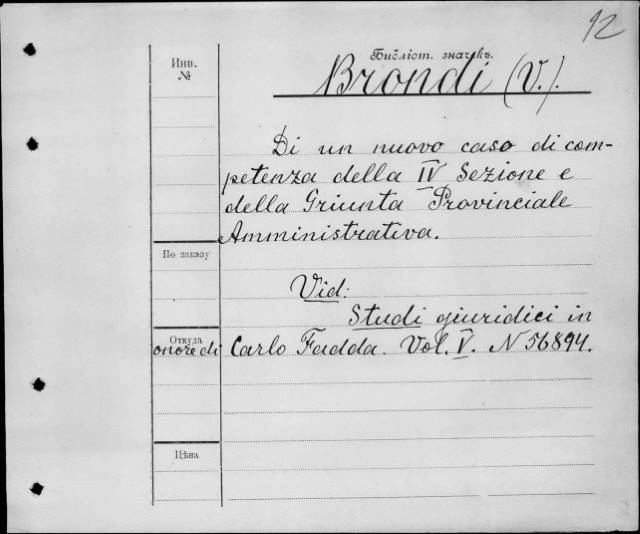 12
Инв.
№
Библіот. значекъ.
Brondi (V.).
Di un nuovo caso di com-
petenza della IV Sezione e
della Griunta Provinciale
Amministrativa.
По заказу
Vid:
Studi giuridici in
Откуда
onore di Carlo Fadda. Vol. V. N 56894.
Цѣна